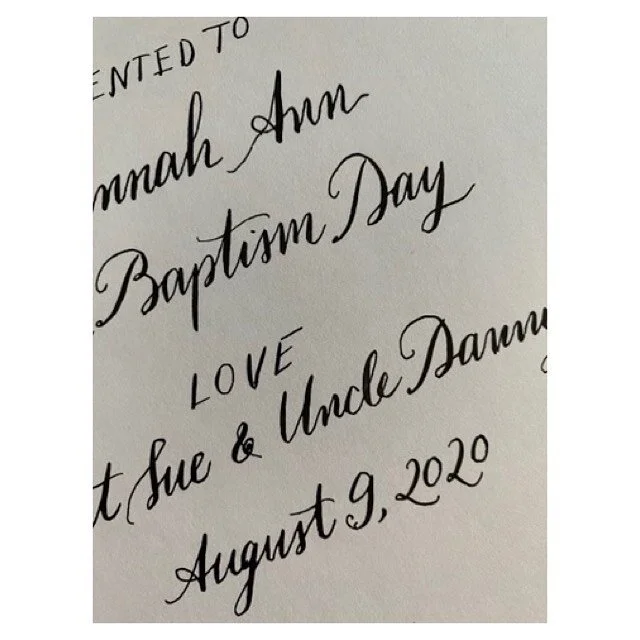 ENTED TO
nnah Ann
Baptism Day
LOVE
t Sue & Uncle Danny
August 9, 2020